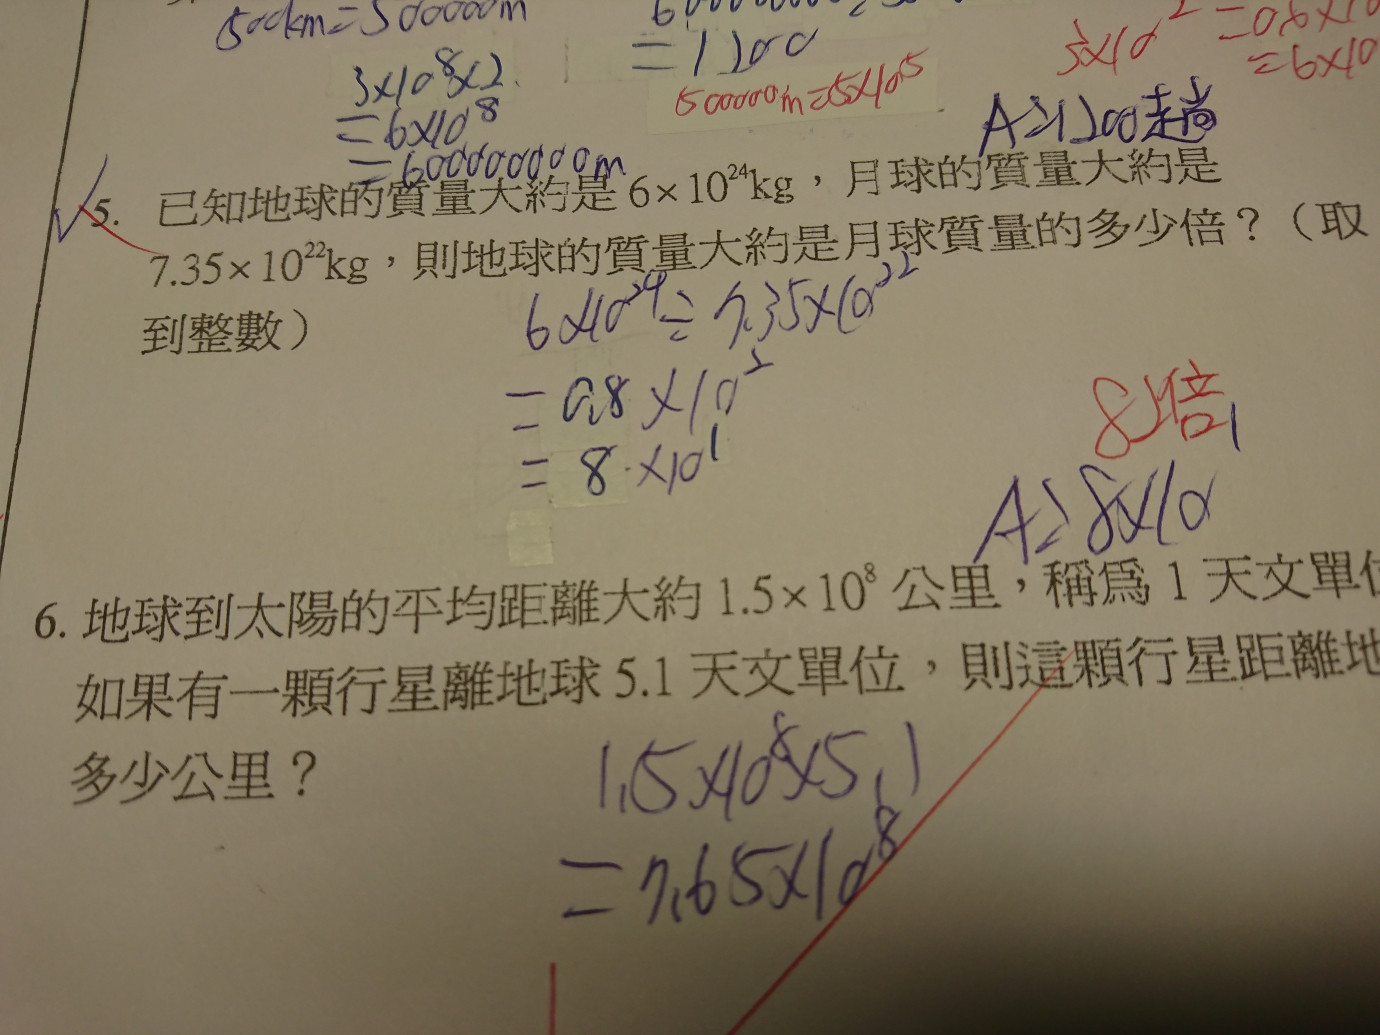 500km=500000m
=1200
3×10⁸×2
=6×10⁸
=600000000m
500000m=5×10⁵
3×10²
=0.6×10
=6×10
A:1200趟
5. 已知地球的質量大約是 6×10²⁴kg，月球的質量大約是
7.35×10²²kg，則地球的質量大約是月球質量的多少倍？（取
到整數）
6×10²⁴÷7.35×10²²
=0.8×10²
=8×10¹
82倍
A:8×10¹
6. 地球到太陽的平均距離大約 1.5×10⁸ 公里，稱為 1 天文單位
如果有一顆行星離地球 5.1 天文單位，則這顆行星距離地
多少公里？
1.5×10⁸×5.1
=7.65×10⁸